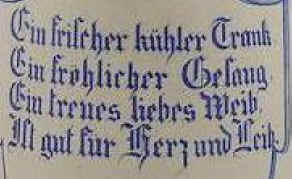 Ein frischer kühler Trank
Ein fröhlicher Gesang,
Ein treues liebes Weib,
Ist gut für Herz und Leib.